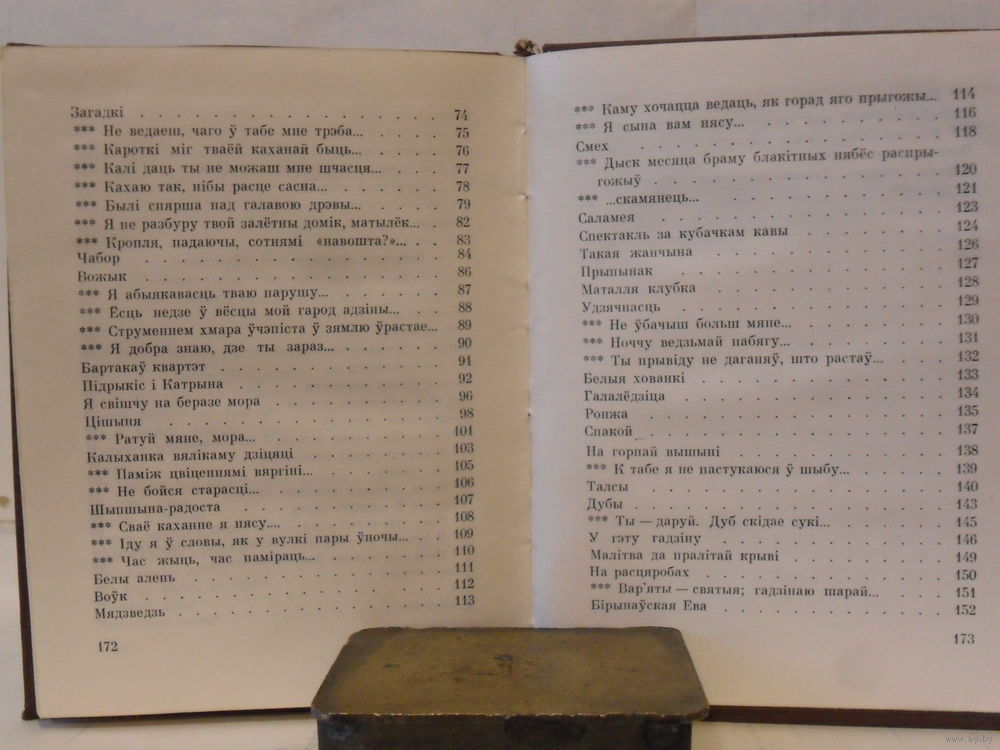 Загадкі . . . . . . . . . . . . . . . . . 74
*** Не ведаеш, чаго ў табе мне трэба... . . . . 75
*** Кароткі міг тваёй каханай быць... . . . . 76
*** Калі даць ты не можаш мне шчасця... . . . 77
*** Кахаю так, нібы расце сасна... . . . . . . 78
*** Былі спярша над галавою дрэвы... . . . . 79
*** Я не разбуру твой залётны домік, матылёк... . 82
*** Кропля, падаючы, сотнямі «навошта?»... . . 83
Чабор . . . . . . . . . . . . . . . . . 84
Вожык . . . . . . . . . . . . . . . . . 86
*** Я абыякавасць тваю парушу... . . . . . . 87
*** Ёсць недзе ў вёсцы мой гарод адзіны... . . . 88
*** Струменнем хмара ўчэпіста ў зямлю ўрастае... 89
*** Я добра знаю, дзе ты зараз... . . . . . . 90
Бартакаў квартэт . . . . . . . . . . . . . 91
Підрыкіс і Катрына . . . . . . . . . . . . 92
Я свішчу на беразе мора . . . . . . . . . . 96
Цішыня . . . . . . . . . . . . . . . . 98
*** Ратуй мяне, мора... . . . . . . . . . . 101
Калыханка вялікаму дзіцяці . . . . . . . . . 103
*** Паміж цвіценнямі вяргіні... . . . . . . . 105
*** Не бойся старасці... . . . . . . . . . . 106
Шыпшына-радоста . . . . . . . . . . . . 107
*** Сваё каханне я нясу.... . . . . . . . . . 108
*** Іду я ў словы, як у вулкі пары ўночы... . . 109
*** Час жыць, час паміраць... . . . . . . . . 110
Белы алень . . . . . . . . . . . . . . . 111
Воўк . . . . . . . . . . . . . . . . . 112
Мядзведзь . . . . . . . . . . . . . . . 113
172
*** Каму хочацца ведаць, як горад яго прыгожы... 114
*** Я сына вам нясу... . . . . . . . . . . 116
Смех . . . . . . . . . . . . . . . . . 118
*** Дыск месяца браму блакітных нябёс распры-
гожыў . . . . . . . . . . . . . . . 120
*** ...скамянець... . . . . . . . . . . . . 121
Саламея . . . . . . . . . . . . . . . . 123
Спектакль за кубачкам кавы . . . . . . . . 124
Такая жанчына . . . . . . . . . . . . . 126
Прыпынак . . . . . . . . . . . . . . . 127
Маталля клубка . . . . . . . . . . . . . 128
Удзячнасць . . . . . . . . . . . . . . . 129
*** Не ўбачыш больш мяне... . . . . . . . . 130
*** Ноччу ведзьмай пабягу... . . . . . . . . 131
*** Ты прывіду не даганяў, што растаў... . . . 132
Белыя хованкі . . . . . . . . . . . . . . 133
Галалёдзіца . . . . . . . . . . . . . . . 134
Ронжа . . . . . . . . . . . . . . . . 135
Спакой . . . . . . . . . . . . . . . . 137
На горнай вышыні . . . . . . . . . . . . 138
*** К табе я не пастукаюся ў шыбу... . . . . . 139
Талсы . . . . . . . . . . . . . . . . 140
Дубы . . . . . . . . . . . . . . . . . 143
*** Ты — даруй. Дуб скідае сукі... . . . . . . 145
У гэту гадзіну . . . . . . . . . . . . . 146
Малітва да пралітай крыві . . . . . . . . . 149
На расцяробах . . . . . . . . . . . . . 150
*** Вар'яты — святыя; гадзінаю шарай... . . . 151
Бірынаўская Ева . . . . . . . . . . . . . 152
173
www.ay.by